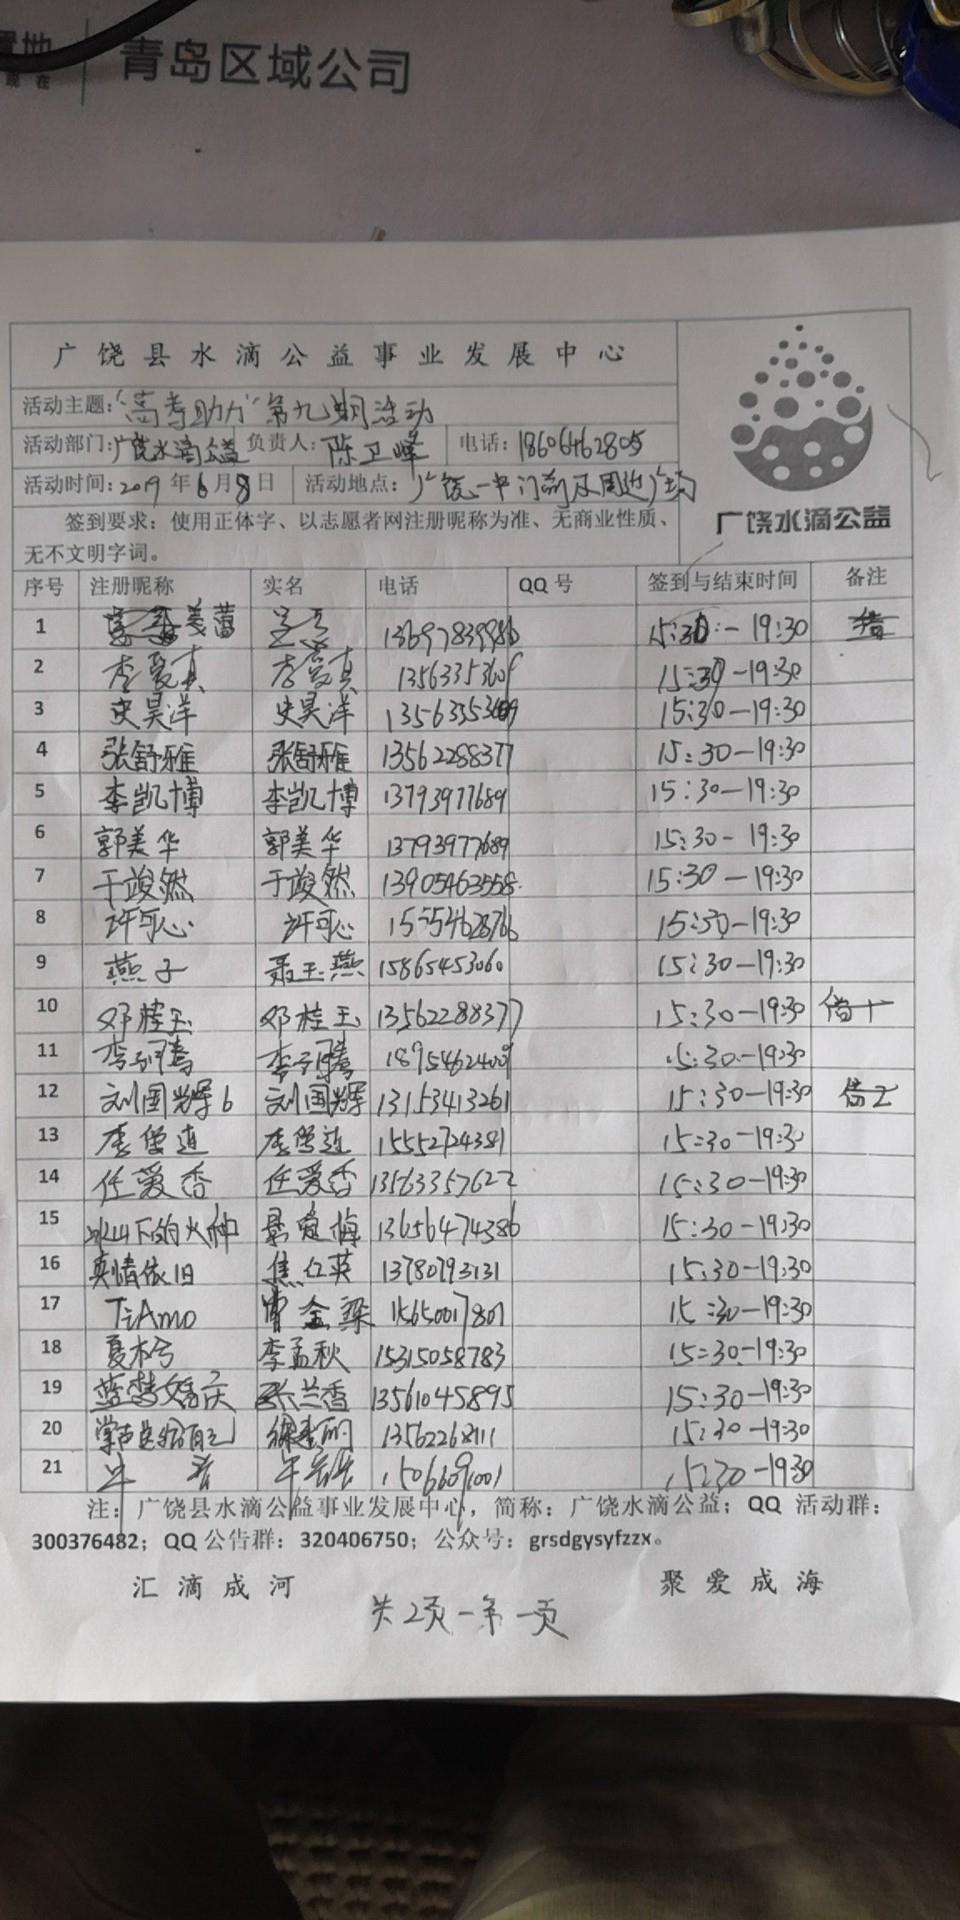 青岛区域公司
广饶县水滴公益事业发展中心
活动主题:“高考助力”第九期活动
活动部门:广饶水滴公益 负责人:陈卫峰 电话:18606462805
活动时间:2019年6月8日 活动地点:广饶一中门前及周边广场
广饶水滴公益
签到要求：使用正体字、以志愿者网注册昵称为准、无商业性质、
无不文明字词。
序号 注册昵称 实名 电话 QQ号 签到与结束时间 备注
1 15:30-19:30
2 李爱真 李爱真 15:30-19:30
3 史昊洋 史昊洋 15:30-19:30
4 张舒雅 张舒雅 13562288377 15:30-19:30
5 李凯博 李凯博 13793977689 15:30-19:30
6 郭美华 郭美华 13793977689 15:30-19:30
7 于竣然 于竣然 13905463558 15:30-19:30
8 许可心 许可心 15:30-19:30
9 燕子 聂玉燕 15865453060 15:30-19:30
10 邓桂玉 邓桂玉 13562288377 15:30-19:30
11 15:30-19:30
12 刘国辉6 刘国辉 13153413261 15:30-19:30
13 15552724381 15:30-19:30
14 任爱香 任爱香 13563357622 15:30-19:30
15 冰山下的火种 13656474386 15:30-19:30
16 真情依旧 焦红英 13780793131 15:30-19:30
17 TiAmo 曹金梁 15650017801 15:30-19:30
18 夏木兮 李孟秋 15315058783 15:30-19:30
19 蓝梦婚庆 张兰香 13561045895 15:30-19:30
20 13562268111 15:30-19:30
21 15066091001 15:30-19:30
注：广饶县水滴公益事业发展中心，简称：广饶水滴公益；QQ 活动群：
300376482；QQ公告群：320406750；公众号：grsdgysyfzzx。
汇滴成河 聚爱成海
共2页-第一页